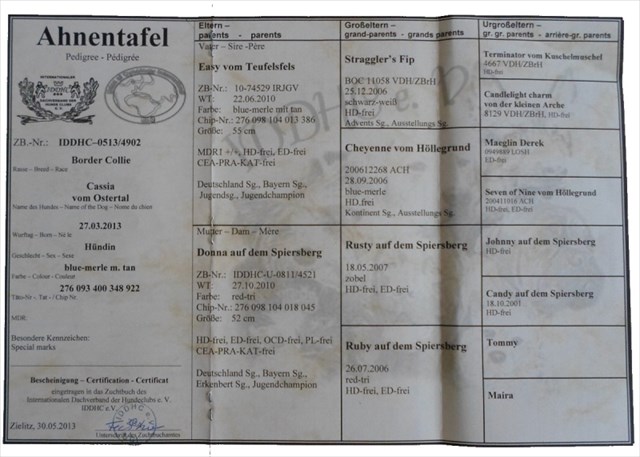 Ahnentafel
Pedigree - Pédigrée
INTERNATIONALER
IDDHC
ZB.-Nr.: IDDHC–0513/4902
Border Collie
Rasse – Breed – Race
Cassia
vom Ostertal
Name des Hundes – Name of the Dog – Nome du chier
27.03.2013
Wurftag – Born – Né le
Hündin
Geschlecht – Sex – Sexe
blue-merle m. tan
Farbe – Colour – Couleur
276 093 400 348 922
Täto-Nr – Tat – / Chip Nr.
MDR:
Besondere Kennzeichen:
Special marks
Bescheinigung – Certification - Certificat
eingetragen in das Zuchtbuch des
Internationalen Dachverband der Hundeclubs e. V.
IDDHC e.V.
Zielitz, 30.05.2013
Unterschrift des Zuchtbuchamtes
Eltern –
parents - parents
Vater – Sire -Père
Easy vom Teufelsfels
ZB-Nr.: 10-74529 IRJGV
WT: 22.06.2010
Farbe: blue-merle mit tan
Chip-Nr: 276 098 104 013 386
Größe: 55 cm
MDR1 +/+, HD-frei, ED-frei
CEA-PRA-KAT-frei
Deutschland Sg., Bayern Sg.,
Jugendsg., Jugendchampion
Mutter – Dam – Mère
Donna auf dem Spiersberg
ZB-Nr.: IDDHC-U-0811/4521
WT: 27.10.2010
Farbe: red-tri
Chip-Nr: 276 098 104 018 045
Größe: 52 cm
HD-frei, ED-frei, OCD-frei, PL-frei
CEA-PRA-KAT-frei
Deutschland Sg., Bayern Sg.,
Erkenbert Sg., Jugendchampion
Großeltern –
grand-parents - grands parents
Straggler's Fip
BOC 11058 VDH/ZBrH
25.12.2006
schwarz-weiß
HD-frei
Advents Sg., Ausstellung Sg.
Cheyenne vom Höllegrund
200612268 ACH
28.09.2006
blue-merle
HD.frei
Kontinent Sg., Ausstellungs Sg.
Rusty auf dem Spiersberg
18.05.2007
zobel
HD-frei, ED-frei
Ruby auf dem Spiersberg
26.07.2006
red-tri
HD-frei, ED-frei
Urgroßeltern –
gr. gr. parents - arrière-gr. parents
Terminator vom Kuschelmuschel
4667 VDH/ZBrH
HD-frei
Candlelight charm
von der kleinen Arche
8129 VDH/ZBrH, HD-frei
Maeglin Derek
0949889 LOSH
ED-frei
Seven of Nine vom Höllegrund
200411016 ACH
HD-frei, ED-frei
Johnny auf dem Spiersberg
HD-frei
Candy auf dem Spiersberg
18.10.2001
HD-frei
Tommy
Maira